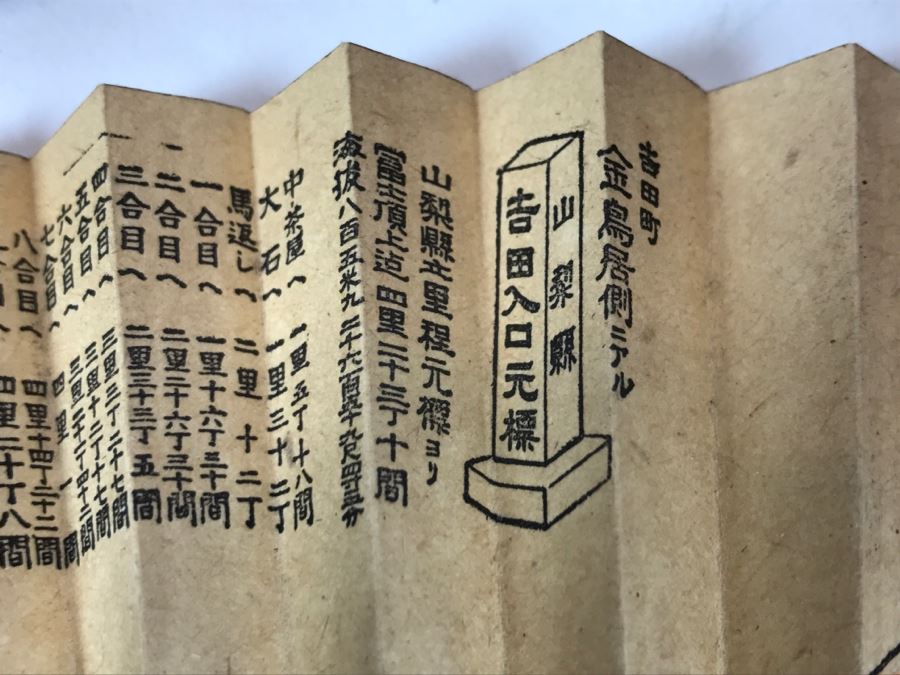 吉田町
金鳥居側ニアル
山梨縣
吉田入口元標
山梨縣立里程元標ヨリ
冨士頂上迄 四里二十三丁十間
海拔八百五米九
中茶屋へ 一里五丁十八間
大石へ 一里三十二丁
馬返しへ 二里十二丁
一合目へ 一里十六丁三十間
二合目へ 二里二十六丁三十間
三合目へ 二里三十三丁五間
四合目へ 三里三丁二十七間
五合目へ 三里十二丁十七間
六合目へ 三里二十丁四十二間
七合目へ 四里一間
八合目へ 四里十四丁二十二間
四里二十丁八間